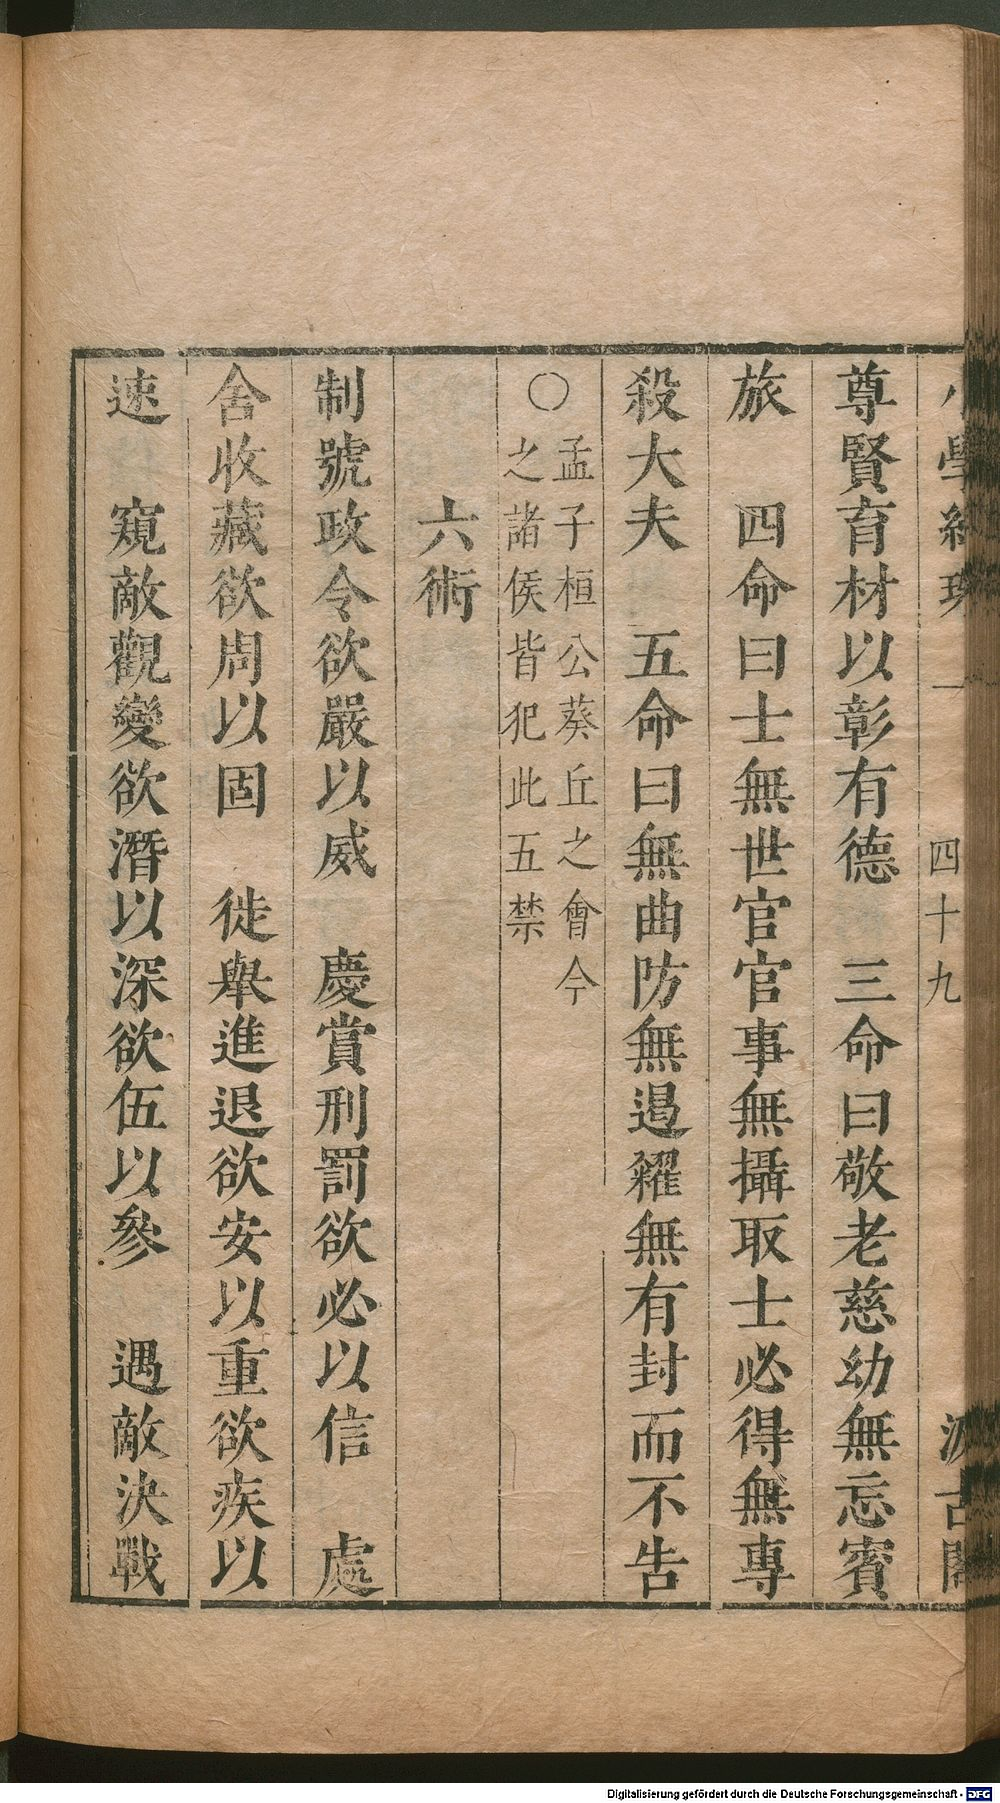 小學紺珠 一 四十九 汲古閣
尊賢育材以彰有德　三命曰敬老慈幼無忘賓
旅　四命曰士無世官官事無攝取士必得無專
殺大夫　五命曰無曲防無遏糴無有封而不告
〇孟子桓公葵丘之會今
之諸侯皆犯此五禁
六術
制號政令欲嚴以威　慶賞刑罰欲必以信　處
舍收藏欲周以固　徙舉進退欲安以重欲疾以
速　窺敵觀變欲潛以深欲伍以參　遇敵決戰
Digitalisierung gefördert durch die Deutsche Forschungsgemeinschaft - DFG